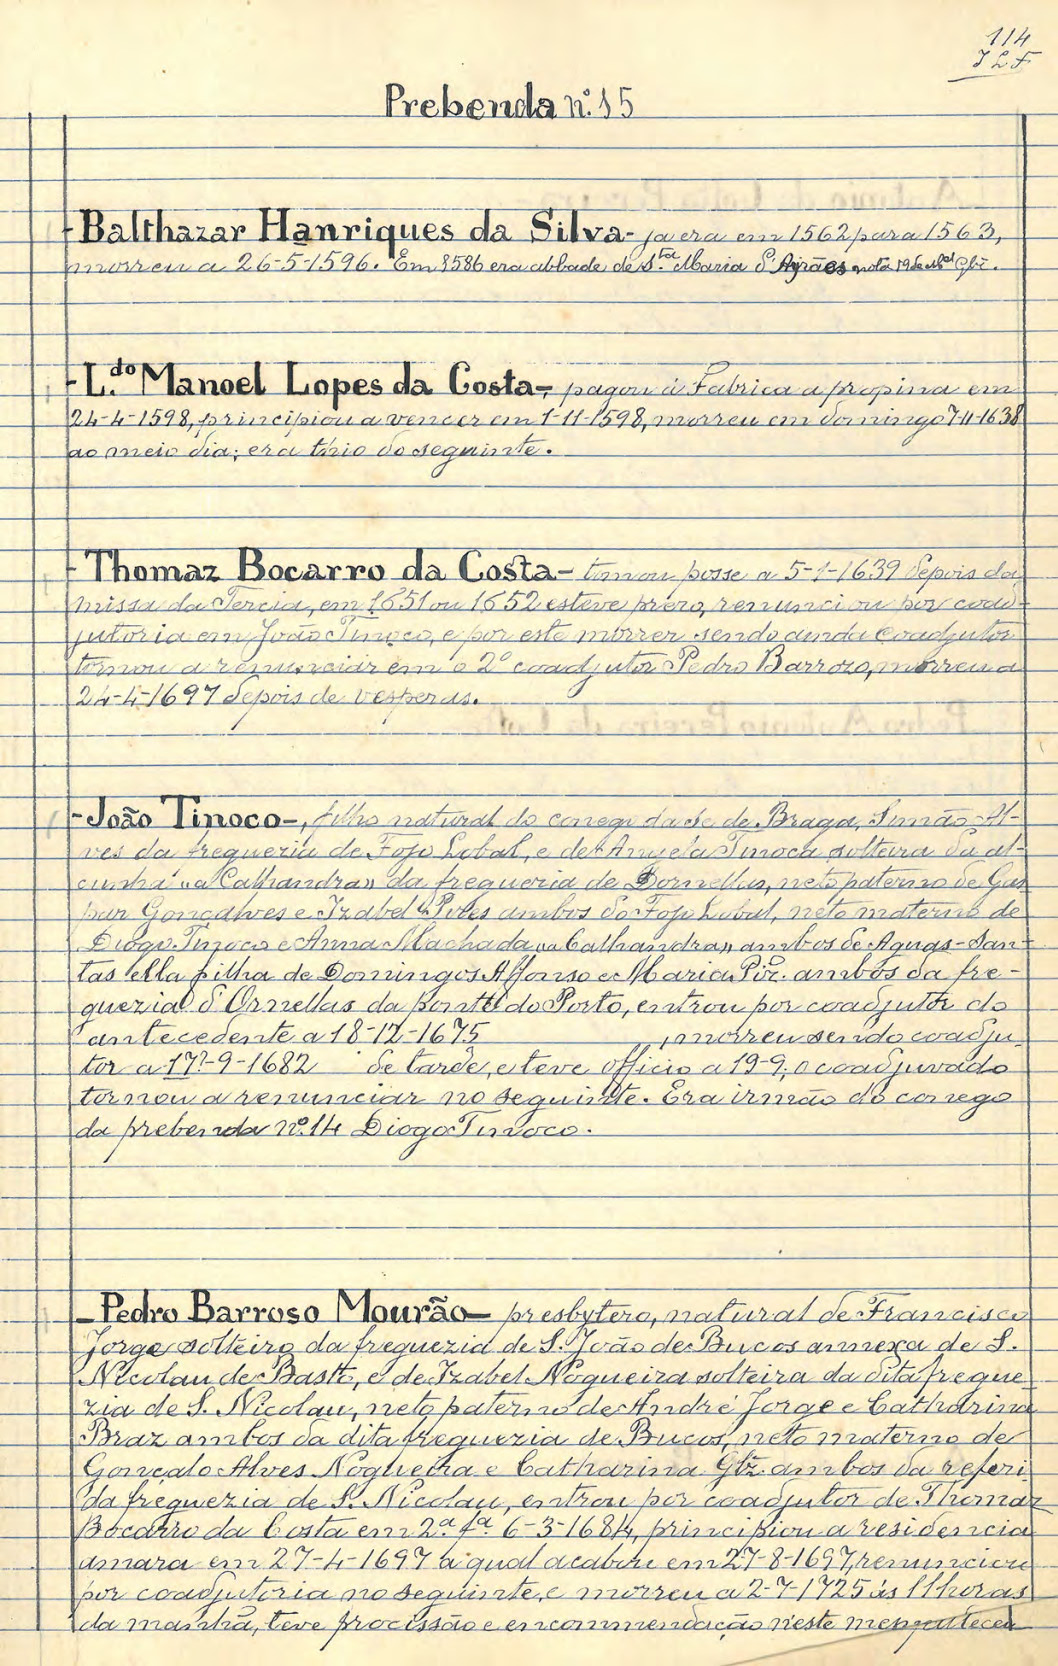 114
J L F
Prebenda nº. 15
- Balthazar Hanriques da Silva - ja era em 1562 para 1563,
morreu a 26-5-1596. Em 1586 era abbade de S.ta Maria d'Airães nota 19 de
- L.do Manoel Lopes da Costa -, pagou á Fabrica a propina em
24-4-1598, principiou a vencer em 1-11-1598, morreu em domingo 7-11-1638
ao meio dia; era thio do seguinte.
- Thomaz Bocarro da Costa - tomou posse a 5-1-1639 depois da
missa da Tercia, em 1651 ou 1652 esteve prezo, renunciou por coad-
jutoria em João Tinoco, e por este morrer sendo ainda coadjutor
tornou a renunciar em o 2º coadjutor Pedro Barrozo, morreu a
24-4-1697 depois de vesperas.
- João Tinoco -, filho natural do conego da Se de Braga, Simão Al-
ves da freguezia de Fojo Lobal, e de Angela Tinoca solteira da al-
cunha "a Calhandra" da freguezia de Dornellas, neto paterno de Gas
par Gonçalves e Izabel Pires ambos do Fojo Lobal, neto materno de
Diogo Tinoco e Anna Machada "a Calhandra" ambos de Aguas-San-
tas ella filha de Domingos Affonso e Maria Piz. ambos da fre-
guezia d'Ornellas da ponte do Porto, entrou por coadjutor do
antecedente a 18-12-1675 , morreu sendo coadju-
tor a 17?-9-1682 de tarde, e teve officio a 19-9; o coadjuvado
tornou a renunciar no seguinte. Era irmão do conego
da prebenda nº. 14 Diogo Tinoco.
- Pedro Barroso Mourão - presbytero, natural de Francisco
Jorge solteiro da freguezia de S. João de Bucos annexa de S.
Nicolau de Basto, e de Izabel Nogueira solteira da dita fregue-
zia de S. Nicolau, neto paterno de André Jorge e Catharina
Braz ambos da dita freguezia de Bucos, neto materno de
Gonçalo Alves Nogueira e Catharina Glz. ambos da referi-
da freguezia de S. Nicolau, entrou por coadjutor de Thomaz
Bocarro da Costa em 2.ª f.ª 6-3-1684, principiou a residencia
amara em 27-4-1697 a qual acabou em 27-8-1697, renunciou
por coadjutoria no seguinte, e morreu a 2-7-1725 ás 11 horas
da manhã, teve procissão e encommendação n'este mesmo